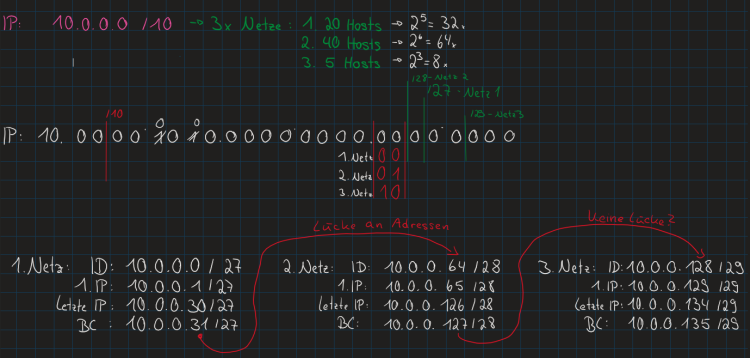 IP: 10.0.0.0 /10 → 3x Netze: 1. 20 Hosts → 2^5 = 32x
2. 40 Hosts → 2^6 = 64x
3. 5 Hosts → 2^3 = 8x
128-Netz 2
127-Netz 1
/10
125-Netz3
0 0
IP: 10. 00 00 10 10.00000000.00 00 0000
1.Netz 00
2.Netz 01
3.Netz 10
Lücke an Adressen
Keine Lücke?
1.Netz: ID: 10.0.0.0 / 27
1.IP: 10.0.0.1 / 27
Letzte IP: 10.0.0.30/27
BC: 10.0.0.31/27
2.Netz: ID: 10.0.0.64 /28
1.IP: 10.0.0.65 /28
Letzte IP: 10.0.0.126 /28
BC: 10.0.0.127/28
3.Netz: ID: 10.0.0.128 /29
1.IP: 10.0.0.129 /29
Letzte IP: 10.0.0.134 /29
BC: 10.0.0.135 /29